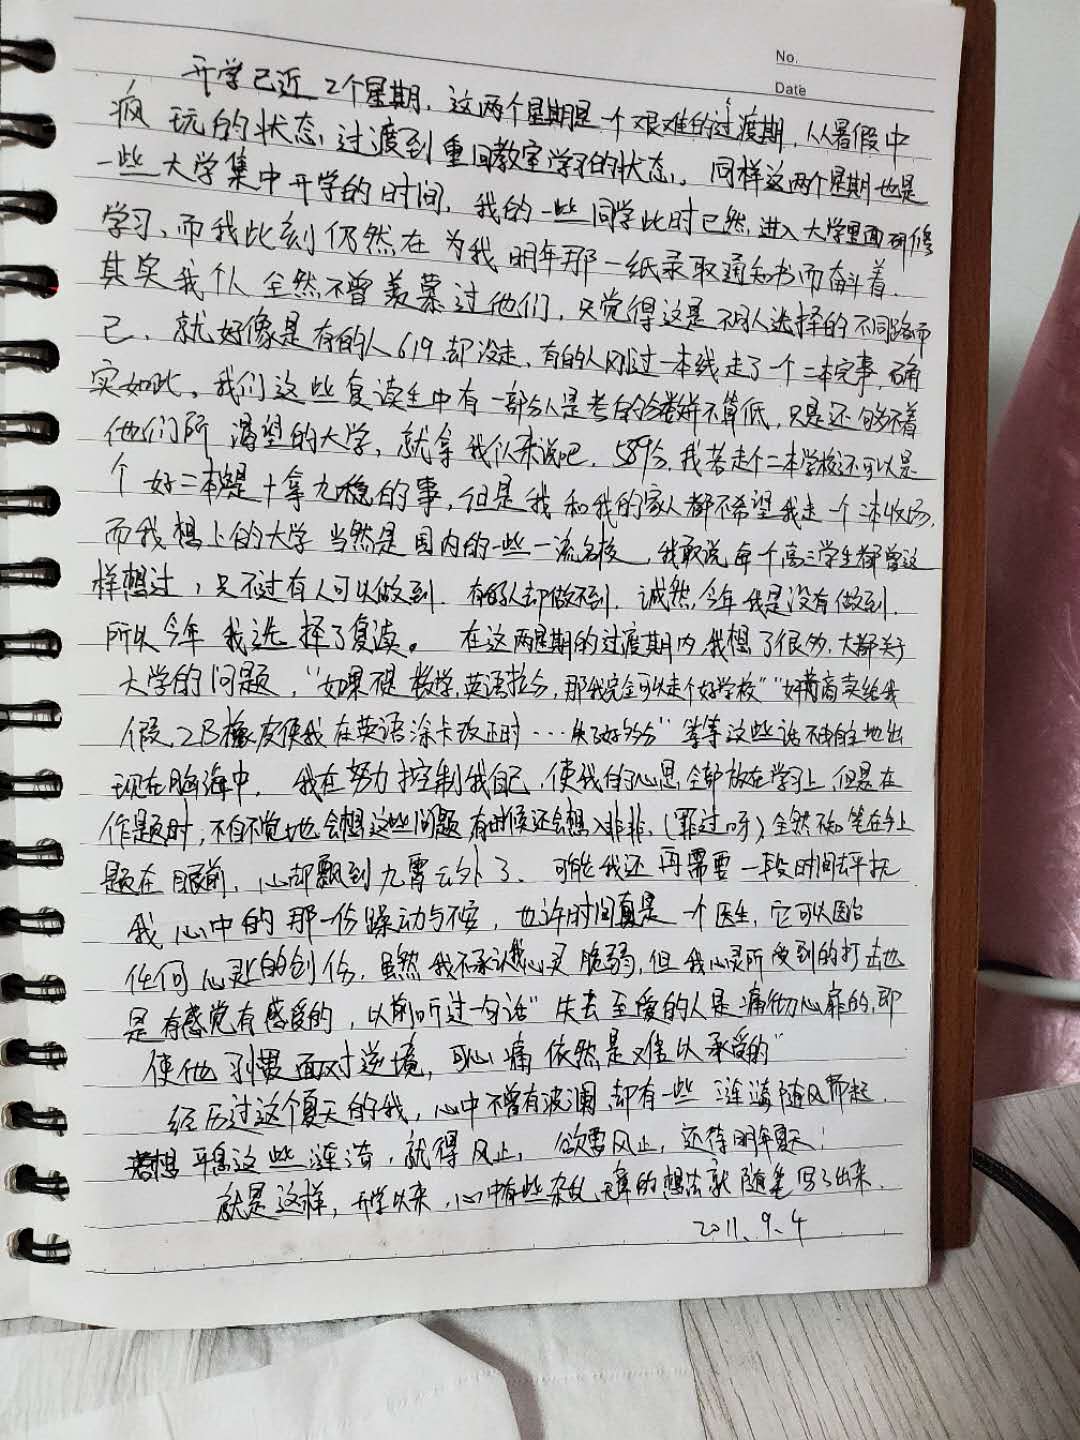 No.
Date
开学已近2个星期,这两个星期是一个艰难的过渡期,从暑假中
疯玩的状态,过渡到重回教室学习的状态。同样这两个星期也是
一些大学集中开学的时间,我的一些同学此时已然进入大学里面研修
学习,而我此刻仍然在为我明年那一纸录取通知书而奋斗着.
其实我们全然不曾羡慕过他们,只觉得这是不同人选择的不同路而
已,就好像是有的人619却没走,有的人刚过一本线走了一个二本完事,确
实如此。我们这些复读生中有一部分人是考的分数并不算低,只是还够不着
他们所渴望的大学,就拿我们来说吧,589分,我若走个二本学校还可以是
个好二本是十拿九稳的事,但是我和我的家人都不希望我走一个二本收场,
而我想上的大学当然是国内的一些一流名校,我敢说每个高三学生都曾这
样想过,只不过有人可以做到,有的人却做不到,诚然,今年我是没有做到.
所以今年我选择了复读。在这两星期的过渡期内,我想了很多,大都关于
大学的问题,“如果不是数学,英语拉分,那我完全可以走个好学校”“奸商高卖给我
假2B橡皮使我在英语涂卡改正时…失了好多分”等等这些话不自主地出
现在脑海中,我在努力控制我自己,使我的心思全部放在学习上,但是在
作题时,不自不觉地会想这些问题,有时候还会想入非非,(罪过呀)全然不知笔在手上
题在眼前,心却飘到九霄云外了、可能我还再需要一段时间去平抚
我心中的那一份躁动与不安,也许时间真是一个医生,它可以医治
任何心灵的创伤,虽然我不承认我心灵脆弱,但我心灵所受到的打击也
是有感觉有感受的,以前听过一句话“失去至爱的人是痛彻心扉的,即
使他习惯面对逆境,可心痛依然是难以承受的”
经历过这个夏天的我,心中不曾有波澜,却有一些涟漪随风而起.
若想平息这些涟漪,就得风止,欲要风止,还待明年夏天!
就是这样,开学以来,心中有些杂乱无章的想法就随笔写了出来.
2011.9.4